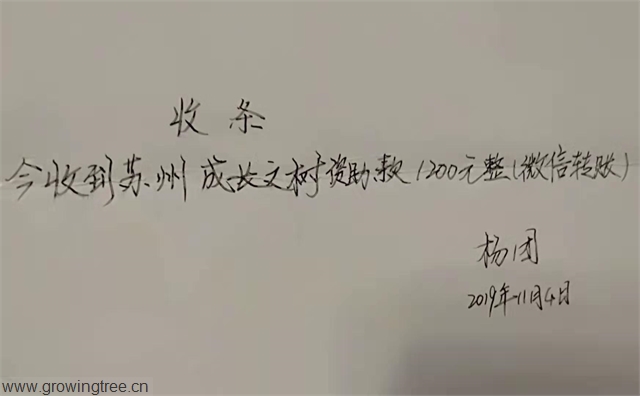 收条
今收到苏州成长文树资助款1200元整(微信转账)
杨团
2019年11月4日
www.growingtree.cn